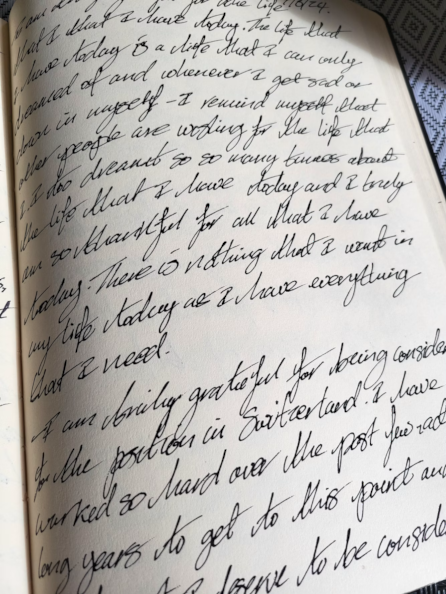 for the life
that I that I have today. The life that
I have today is a life that I can only
dreamed of and whenever I get sad or
down in myself - I remind myself that
other people are wishing for the life that
I do dreamt so so many times about
the life that I have today and I truly
am so thankful for all that I have
today. There is nothing that I want in
my life today as I have everything
that I need.
I am truly grateful for being conside
for the position in Switzerland. I have
worked so hard over the past few
long years to get to this point and
I deserve to be conside